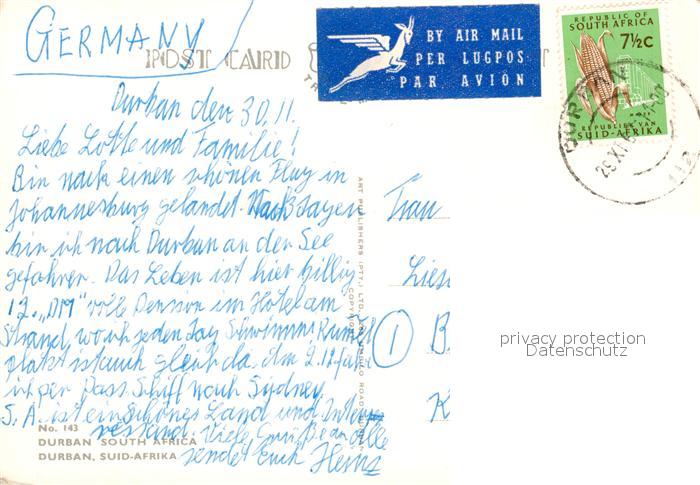 GERMANY
POST CARD
BY AIR MAIL
PER LUGPOS
PAR AVION
REPUBLIC OF
SOUTH AFRICA
7½c
REPUBLIEK VAN
SUID-AFRIKA
29 XI
Durban den 30.11.
Liebe Lotte und Familie!
Bin nach einen schönen Flug in
Johannesburg gelandet. Nach 3 Tagen
bin ich nach Durban an der See
gefahren. Das Leben ist hier billig
12. "DM" volle Pension im Hotel am
Strand, wo ich jeden Tag Schwimm. Rummel
platz ist auch gleich da. Am 2.12 fahre
ich per Pass. Schiff nach Sydney
S. A. ist ein schönes Land und
Viele Grüße an alle
sendet Euch Heinz
No. 143
DURBAN SOUTH AFRICA
DURBAN, SUID-AFRIKA
ART PUBLISHERS (PTY.) LTD.
COPYRIGHT
Frau
Lies
1 B
K
privacy protection
Datenschutz